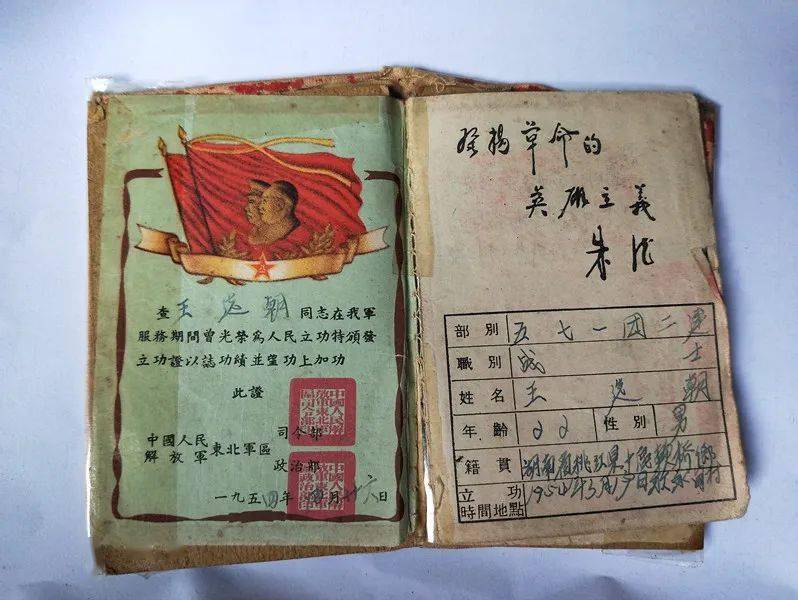 查王延朝同志在我軍
服務期間曾光榮為人民立功特頒發
立功證以誌功績並望功上加功
此證
中國人民
解放軍東北軍區
司令部
政治部
一九五四年 月廿六日
發揚革命的
英雄主義
朱德
部別 五七一團二連
職別 战士
姓名 王延朝
年齡 22 性別 男
籍貫 湖南省桃 县十 區 鄉 村
立功
時間地點 1954年3月 日